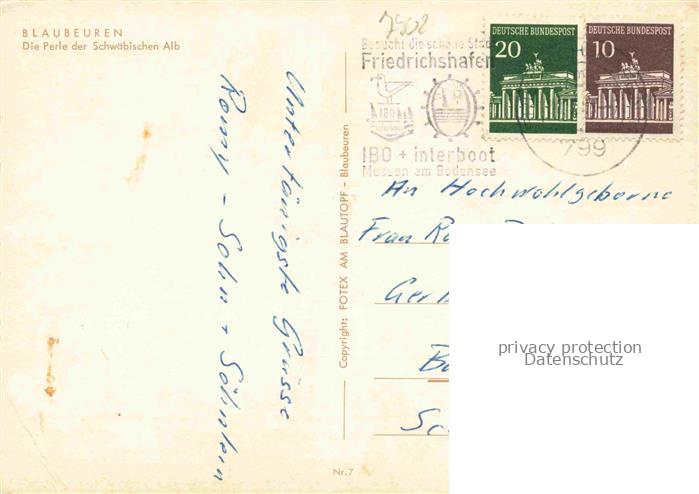 BLAUBEUREN
Die Perle der Schwäbischen Alb
Untertänigste Grüsse
Romy - Sohn + Söhnlein
Copyright: FOTEX AM BLAUTOPF - Blaubeuren
Nr. 7
7902
Besucht die schöne Stadt
Friedrichshafen
IBO
IBO + interboot
Messen am Bodensee
DEUTSCHE BUNDESPOST
20
DEUTSCHE BUNDESPOST
10
799
An Hochwohlgeborne
Frau
privacy protection
Datenschutz